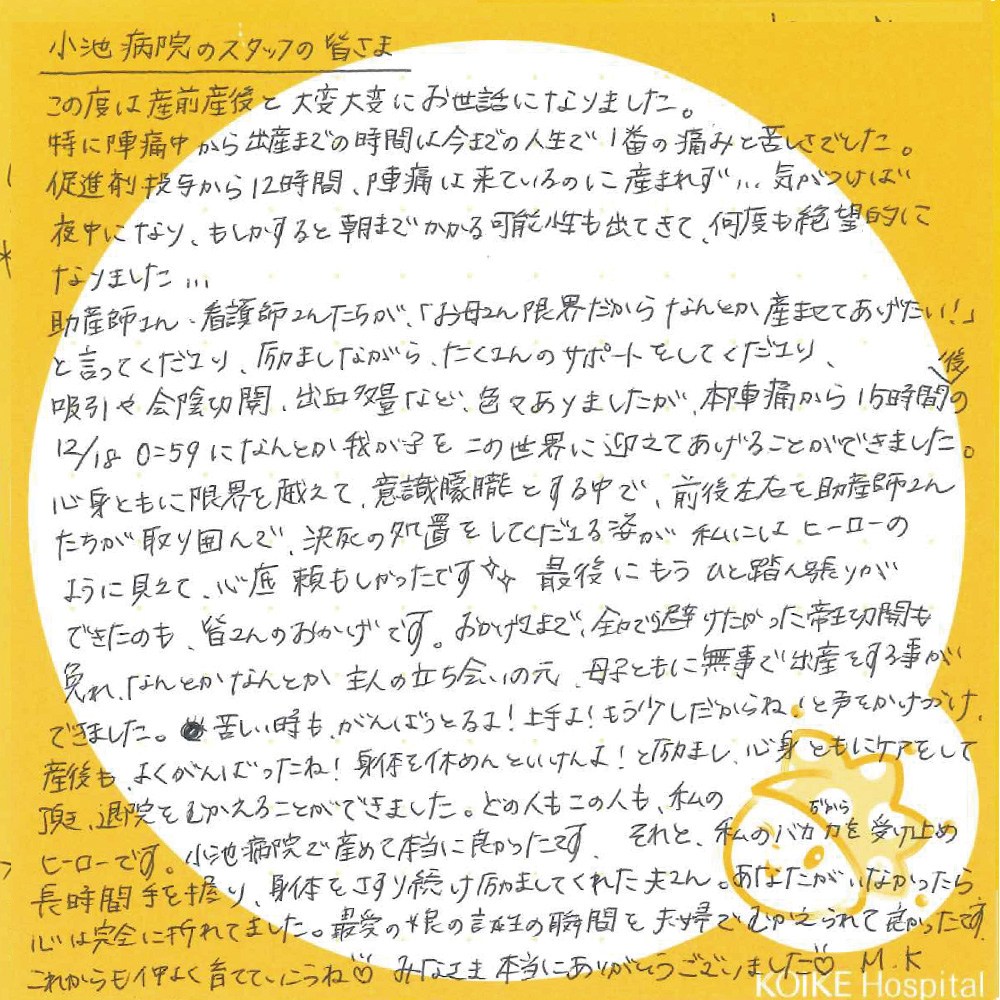 小池病院のスタッフの皆さま
この度は産前産後と大変大変にお世話になりました。
特に陣痛中から出産までの時間は今までの人生で1番の痛みと苦しさでした。
促進剤投与から12時間、陣痛は来ているのに産まれず… 気がつけば
夜中になり、もしかすると朝までかかる可能性も出てきて、何度も絶望的に
なりました…
助産師さん・看護師さんたちが、「お母さん限界だからなんとか産ませてあげたい！」
と言ってくださり、励ましながら、たくさんのサポートをしてくださり、
吸引や会陰切開、出血多量など、色々ありましたが、本陣痛から15時間後の
12/18 0:59になんとか我が子をこの世界に迎えてあげることができました。
心身ともに限界を越えて、意識朦朧とする中で、前後左右を助産師さん
たちが取り囲んで、決死の処置をしてくださる姿が私にはヒーローの
ように見えて、心底頼もしかったです✧✧ 最後にもうひと踏ん張りが
できたのも、皆さんのおかげです。おかげさまで、全力で避けたかった帝王切開も
免れ、なんとかなんとか主人の立ち会いの元、母子ともに無事で出産をする事が
できました。苦しい時も、がんばっとるよ！上手よ！もう少しだからね！と声をかけつづけ、
産後も、よくがんばったね！身体を休めんといけんよ！と励まし、心身ともにケアをして
頂き、退院をむかえることができました。どの人もこの人も、私の
ヒーローです。小池病院で産めて本当に良かったです。それと、私のバカ力を受け止め
ぢから
長時間手を握り、身体をさすり続け励ましてくれた夫さん。あなたがいなかったら
心は完全に折れてました。最愛の娘の誕生の瞬間を夫婦でむかえられて良かったです。
これからも仲よく育てていこうね♡ みなさま本当にありがとうございました♡ M.K
KOIKE Hospital